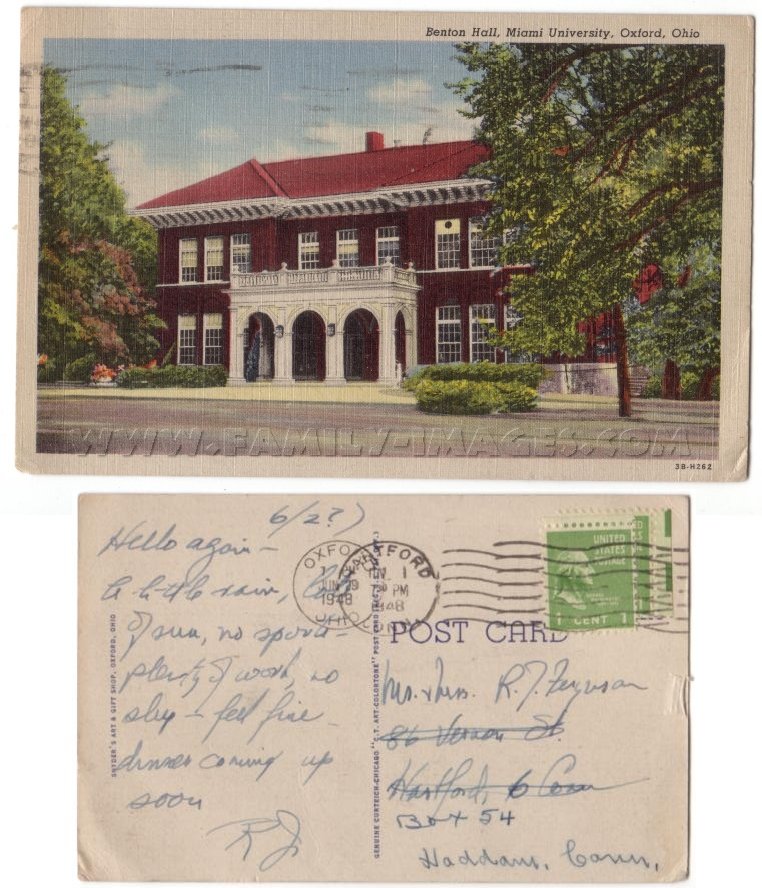 Benton Hall, Miami University, Oxford, Ohio
WWW.FAMILY-IMAGES.COM
3B-H262
6/27)
Hello again –
A little rain, lots
of sun, no sports –
plenty of work, no
sleep – feel fine –
dinner coming up
soon
RJ
SNYDER'S ART & GIFT SHOP, OXFORD, OHIO
GENUINE CURTEICH-CHICAGO "C.T. ART-COLORTONE" POST CARD
OXFO
JUN 29
1948
OHIO
HARTFORD
1
PM
1948
CONN
UNITED
STATES
POSTAGE
1 CENT 1
POST CARD
Mr. & Mrs. R. J. Ferguson
86 Vernon St.
Hartford, 6 Conn
Box 54
Haddam, Conn.